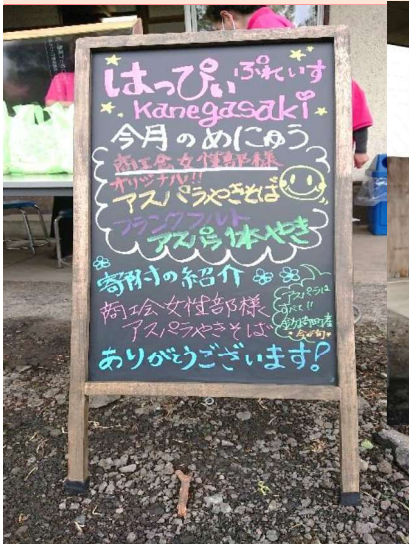 はっぴぃ ぷれいす
Kanegasaki
今月のめにゅう
商工会女性部様
オリジナル!!
アスパラやきそば
フランクフルト
アスパラ1本やき
寄附の紹介
商工会女性部様
アスパラやきそば
アスパラは
すべて!!
金ケ崎町産
今が旬
ありがとうございます!